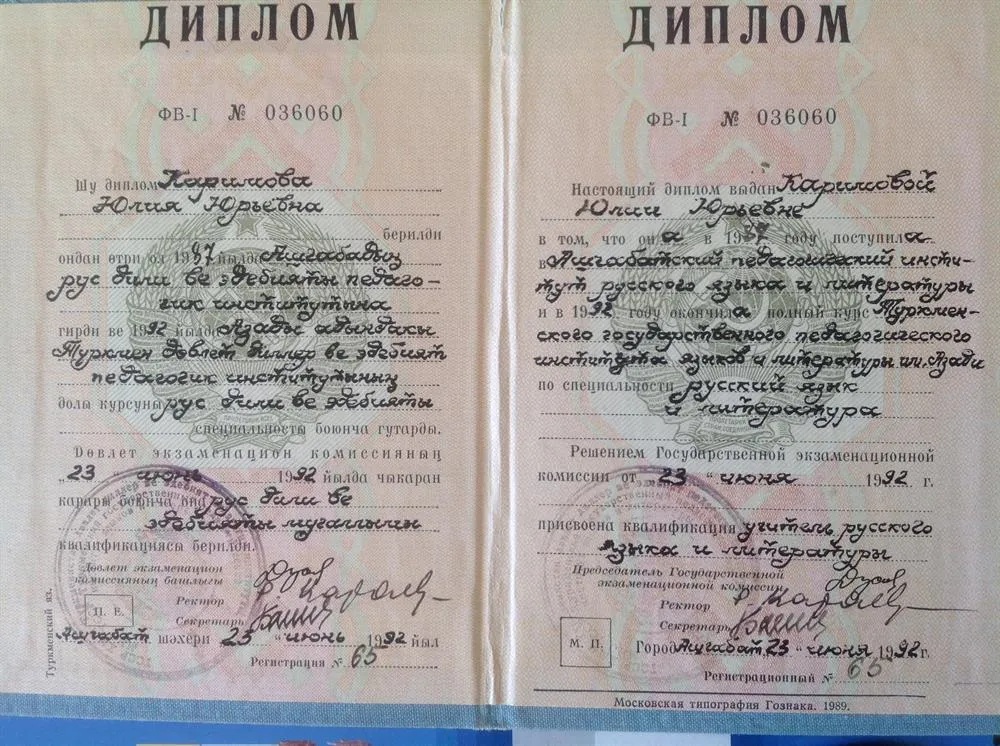 ДИПЛОМ
ФВ-I № 036060
Шу диплом Каримова
Юлия Юрьевна
берилди
ондан өтри ол 1987 йылда Ашгабадың
рус дили ве эдебияты педаго-
гик институтына
гирди ве 1992 йылда Азады адындакы
Түркмен дөвлет диллер ве эдебият
педагогик институтының
долы курсуны рус дили ве эдебияты
специальносты боюнча гутарды.
Дөвлет экзаменацион комиссияның
„23 “ июнь 1992 йылда чыкаран
карары боюнча оңа рус дили ве
эдебияты мугаллымы
квалификациясы берилди.
Дөвлет экзаменацион
комиссияның башлыгы
Ректор
Секретарь
П. Е.
Ашгабат шәхери „23 “ июнь 1992 йыл
Регистрация № 65
Туркменский яз.
ДИПЛОМ
ФВ-I № 036060
Настоящий диплом выдан Каримовой
Юлии Юрьевне
в том, что она в 1987 году поступила
в Ашгабатский педагогический инсти-
тут русского языка и литературы
и в 1992 году окончила полный курс Туркмен-
ского государственного педагогического
института языков и литературы им. Азади
по специальности русский язык
и литература
Решением Государственной экзаменационной
комиссии от „23 “ июня 1992 г.
присвоена квалификация учитель русского
языка и литературы
Председатель Государственной
экзаменационной комиссии
Ректор
Секретарь
М. П.
Город Ашгабат „23 “ июня 1992 г.
Регистрационный № 65
Московская типография Гознака. 1989.